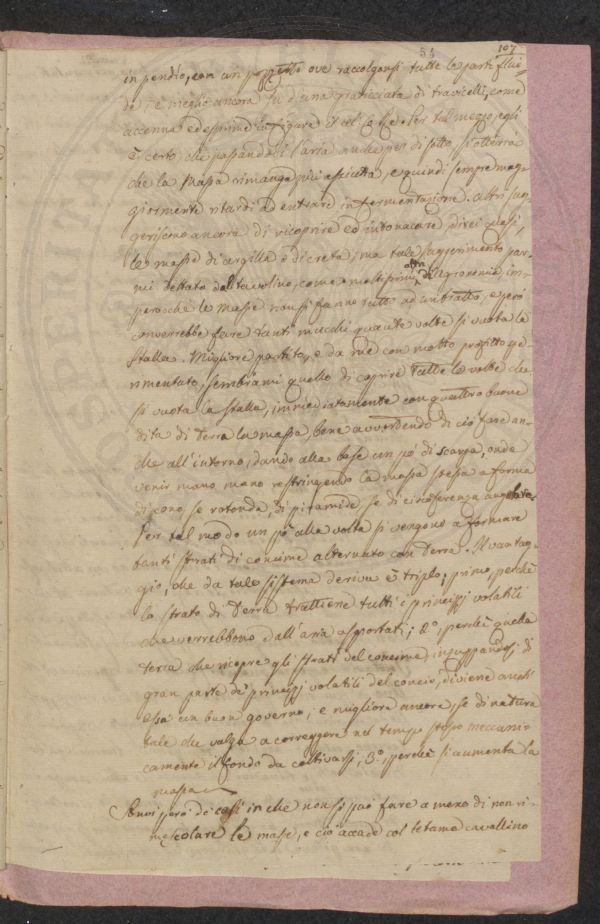 54 107
in pendìo, con un pozzetto ove raccolgansi tutte le parti flui-
de; e meglio ancora fu d'una graticciata di travicelli, come
accenna ed esprime in figure il cel. Per tal mezzo, egli
è certo, che passandovi l'aria anche per di sotto, si otterrà
che la Massa rimanga più asciutta, e quindi sempre mag-
giormente ritardi ad entrare in fermentazione. Altri sug-
geriscono ancora di ricoprire ed intonacare, direi quasi,
le masse di argilla o di creta; ma tale suggerimento par-
mi dettato al tavolino, come moltissimi altri d'Agronomia, im-
perocchè le Masse non si fanno tutte ad un tratto, e però
converrebbe fare tanti mucchi quante volte si vuota la
stalla. Migliore partito, e da me con molto profitto spe-
rimentato, sembrami quello di coprire tutte le volte che
si vuota la stalla, immediatamente con quattro buone
dita di Terra la massa, bene avvertendo di ciò fare an-
che all'intorno, dando alla base un pò di scarpa, onde
venir mano mano restringendo la massa stessa a forma
di cono, se rotonda, di piramide, se di circonferenza angolare.
Per tal modo un pò alla volta si vengono a formare
tanti strati di concime alternato con Terra. Il vantag-
gio, che da tale sistema deriva è triplo; primo, perchè
lo strato di Terra trattiene tutti i principj volatili
che verrebbono dall'aria asportati; 2.º, perchè quella
terra che ricopre gli strati del concime, inzuppandosi di
gran parte de' principj volatili del concio, diviene anch'
essa un buon governo; e migliore ancora, se di natura
tale che valga a correggere nel tempo stesso meccani-
camente il fondo da coltivarsi; 3.º, perchè si aumenta la
massa.
Sonvi però de' casi in che non si può fare a meno di non ri-
mescolare le masse, e ciò accade col letame cavallino